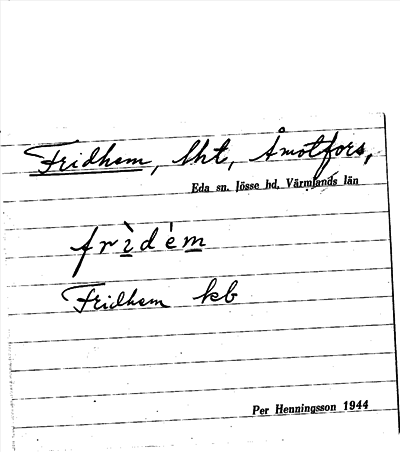 Fridhem, lht, Åmotfors,
Eda sn. Jösse hd. Värmlands län
frìdém
Fridhem kb
Per Henningsson 1944